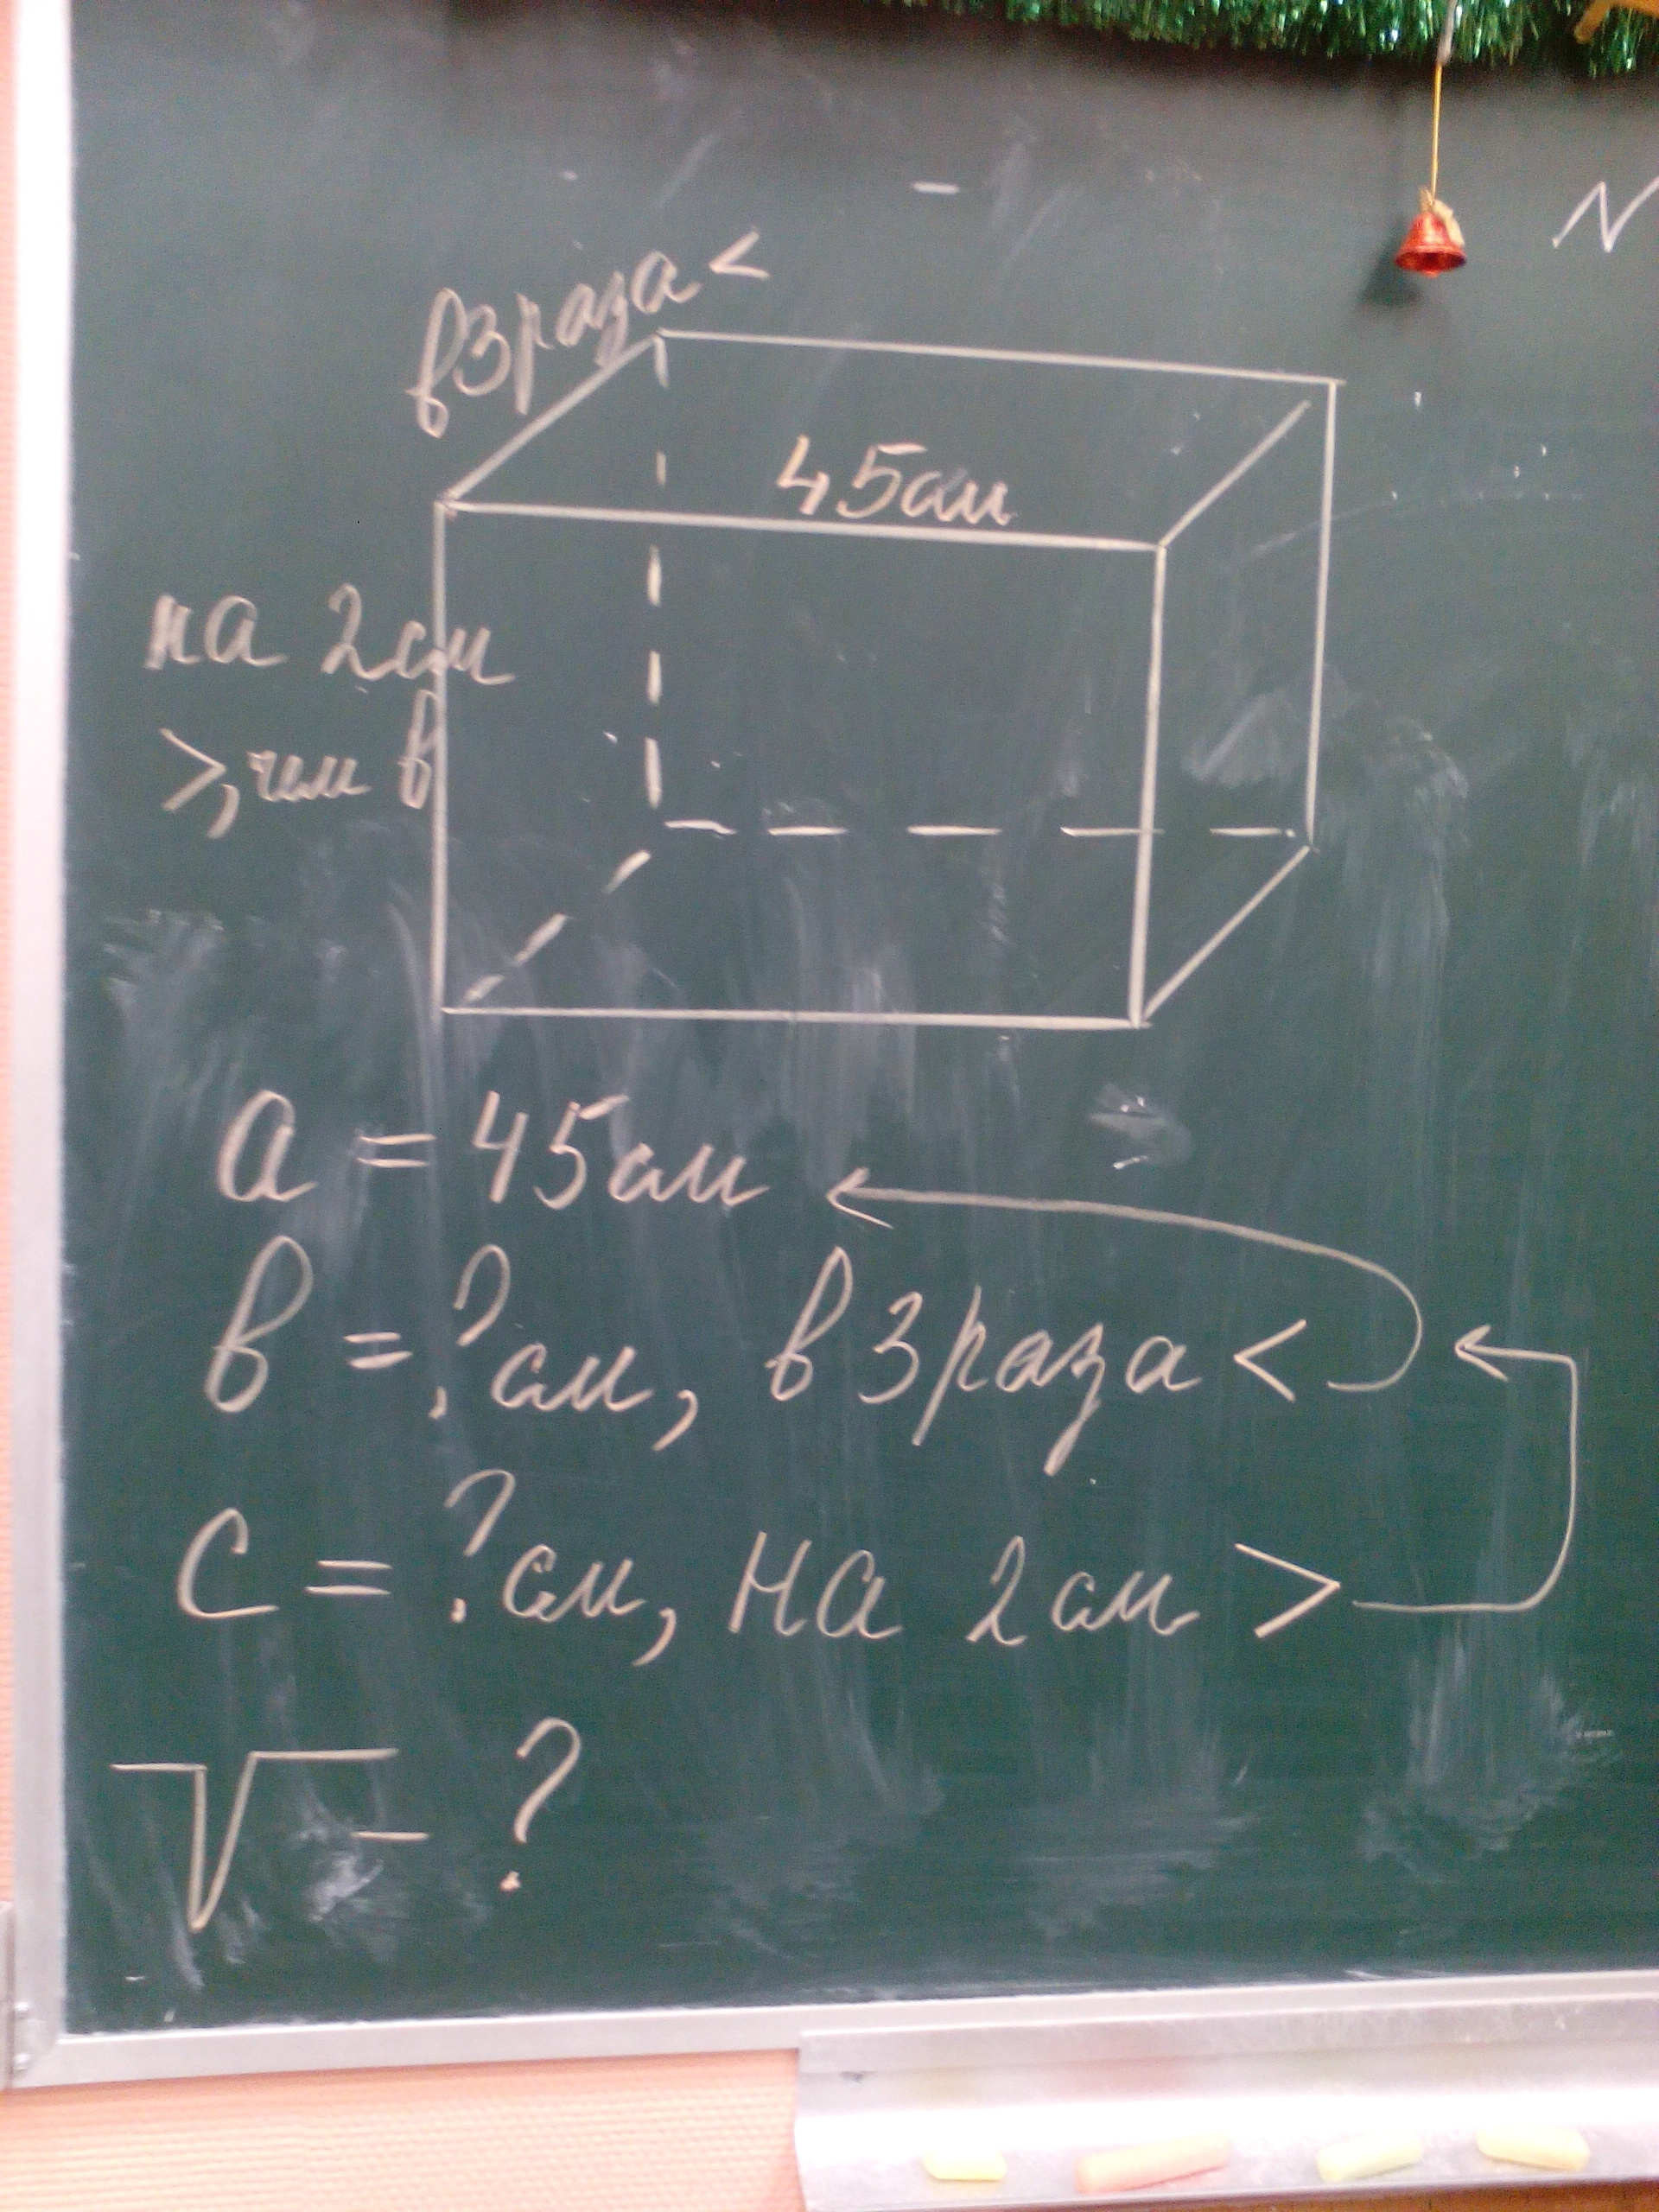 N
в 3 раза <
45см
на 2см
>, чем в
a = 45см
в = ? см, в 3 раза <
c = ? см, на 2 см >
V = ?